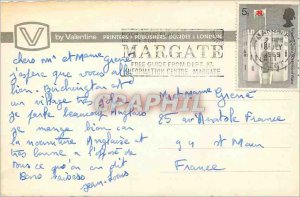 V by Valentine PRINTERS • PUBLISHERS, DUNDEE & LONDON
MARGATE
FREE GUIDE FROM DEPT. K.
INFORMATION CENTRE MARGATE
5D
cher Mr et Mame Grené
j'espère que vous allez
bien. Birchington est
un village très
je parle beaucoup Anglais
je mange bien car
la nourriture Anglaise est
très bonne à l'effet de
tous ce que on en dit
Bons baisers
Jean-Louis
Mr et Mame Grené
85 av Anatole France
94 St Maur
France
PROShopping.com